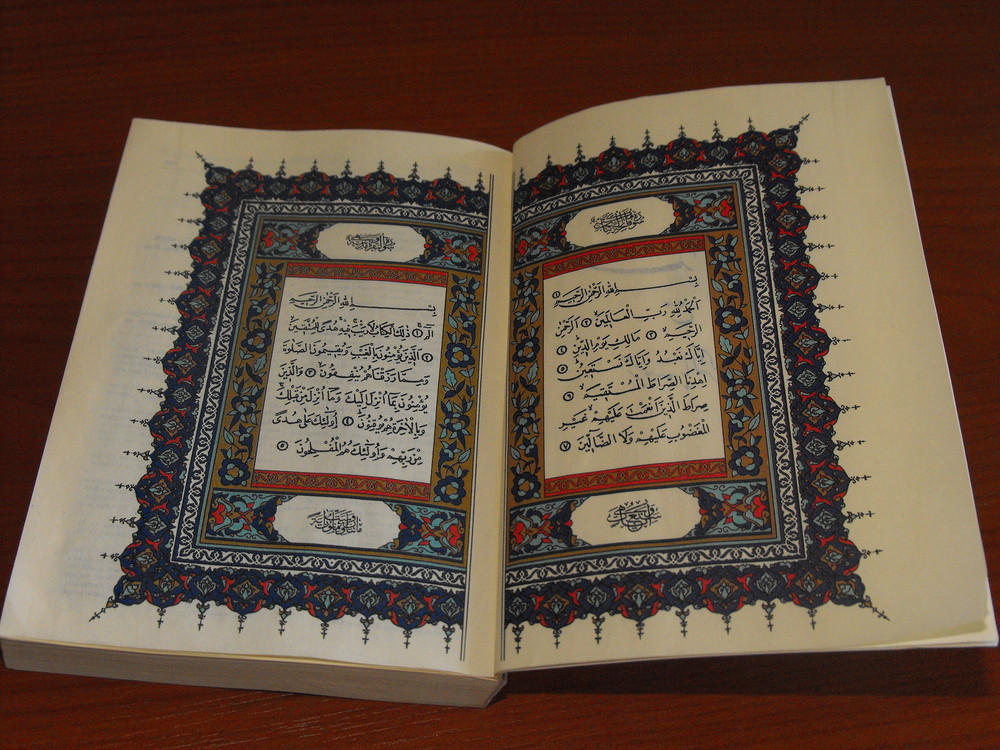 بِسْمِ اللهِ الرَّحْمٰنِ الرَّحِيمِ ١
اَلْحَمْدُ لِلّٰهِ رَبِّ الْعَالَمِينَ ٢ اَلرَّحْمٰنِ
الرَّحِيمِ ٣ مَالِكِ يَوْمِ الدِّينِ ٤
اِيَّاكَ نَعْبُدُ وَاِيَّاكَ نَسْتَعِينُ ٥
اِهْدِنَا الصِّرَاطَ الْمُسْتَقِيمَ ٦
صِرَاطَ الَّذِينَ اَنْعَمْتَ عَلَيْهِمْ غَيْرِ
الْمَغْضُوبِ عَلَيْهِمْ وَلَا الضَّالِّينَ ٧
بِسْمِ اللهِ الرَّحْمٰنِ الرَّحِيمِ
الٓمٓ ١ ذٰلِكَ الْكِتَابُ لَا رَيْبَ فِيهِ هُدًى لِلْمُتَّقِينَ
٢ اَلَّذِينَ يُؤْمِنُونَ بِالْغَيْبِ وَيُقِيمُونَ الصَّلٰوةَ
وَمِمَّا رَزَقْنَاهُمْ يُنْفِقُونَ ٣ وَالَّذِينَ
يُؤْمِنُونَ بِمَا اُنْزِلَ اِلَيْكَ وَمَا اُنْزِلَ مِنْ قَبْلِكَ
وَبِالْاٰخِرَةِ هُمْ يُوقِنُونَ ٤ اُولٰٓئِكَ عَلٰى هُدًى
مِنْ رَبِّهِمْ وَاُولٰٓئِكَ هُمُ الْمُفْلِحُونَ ٥